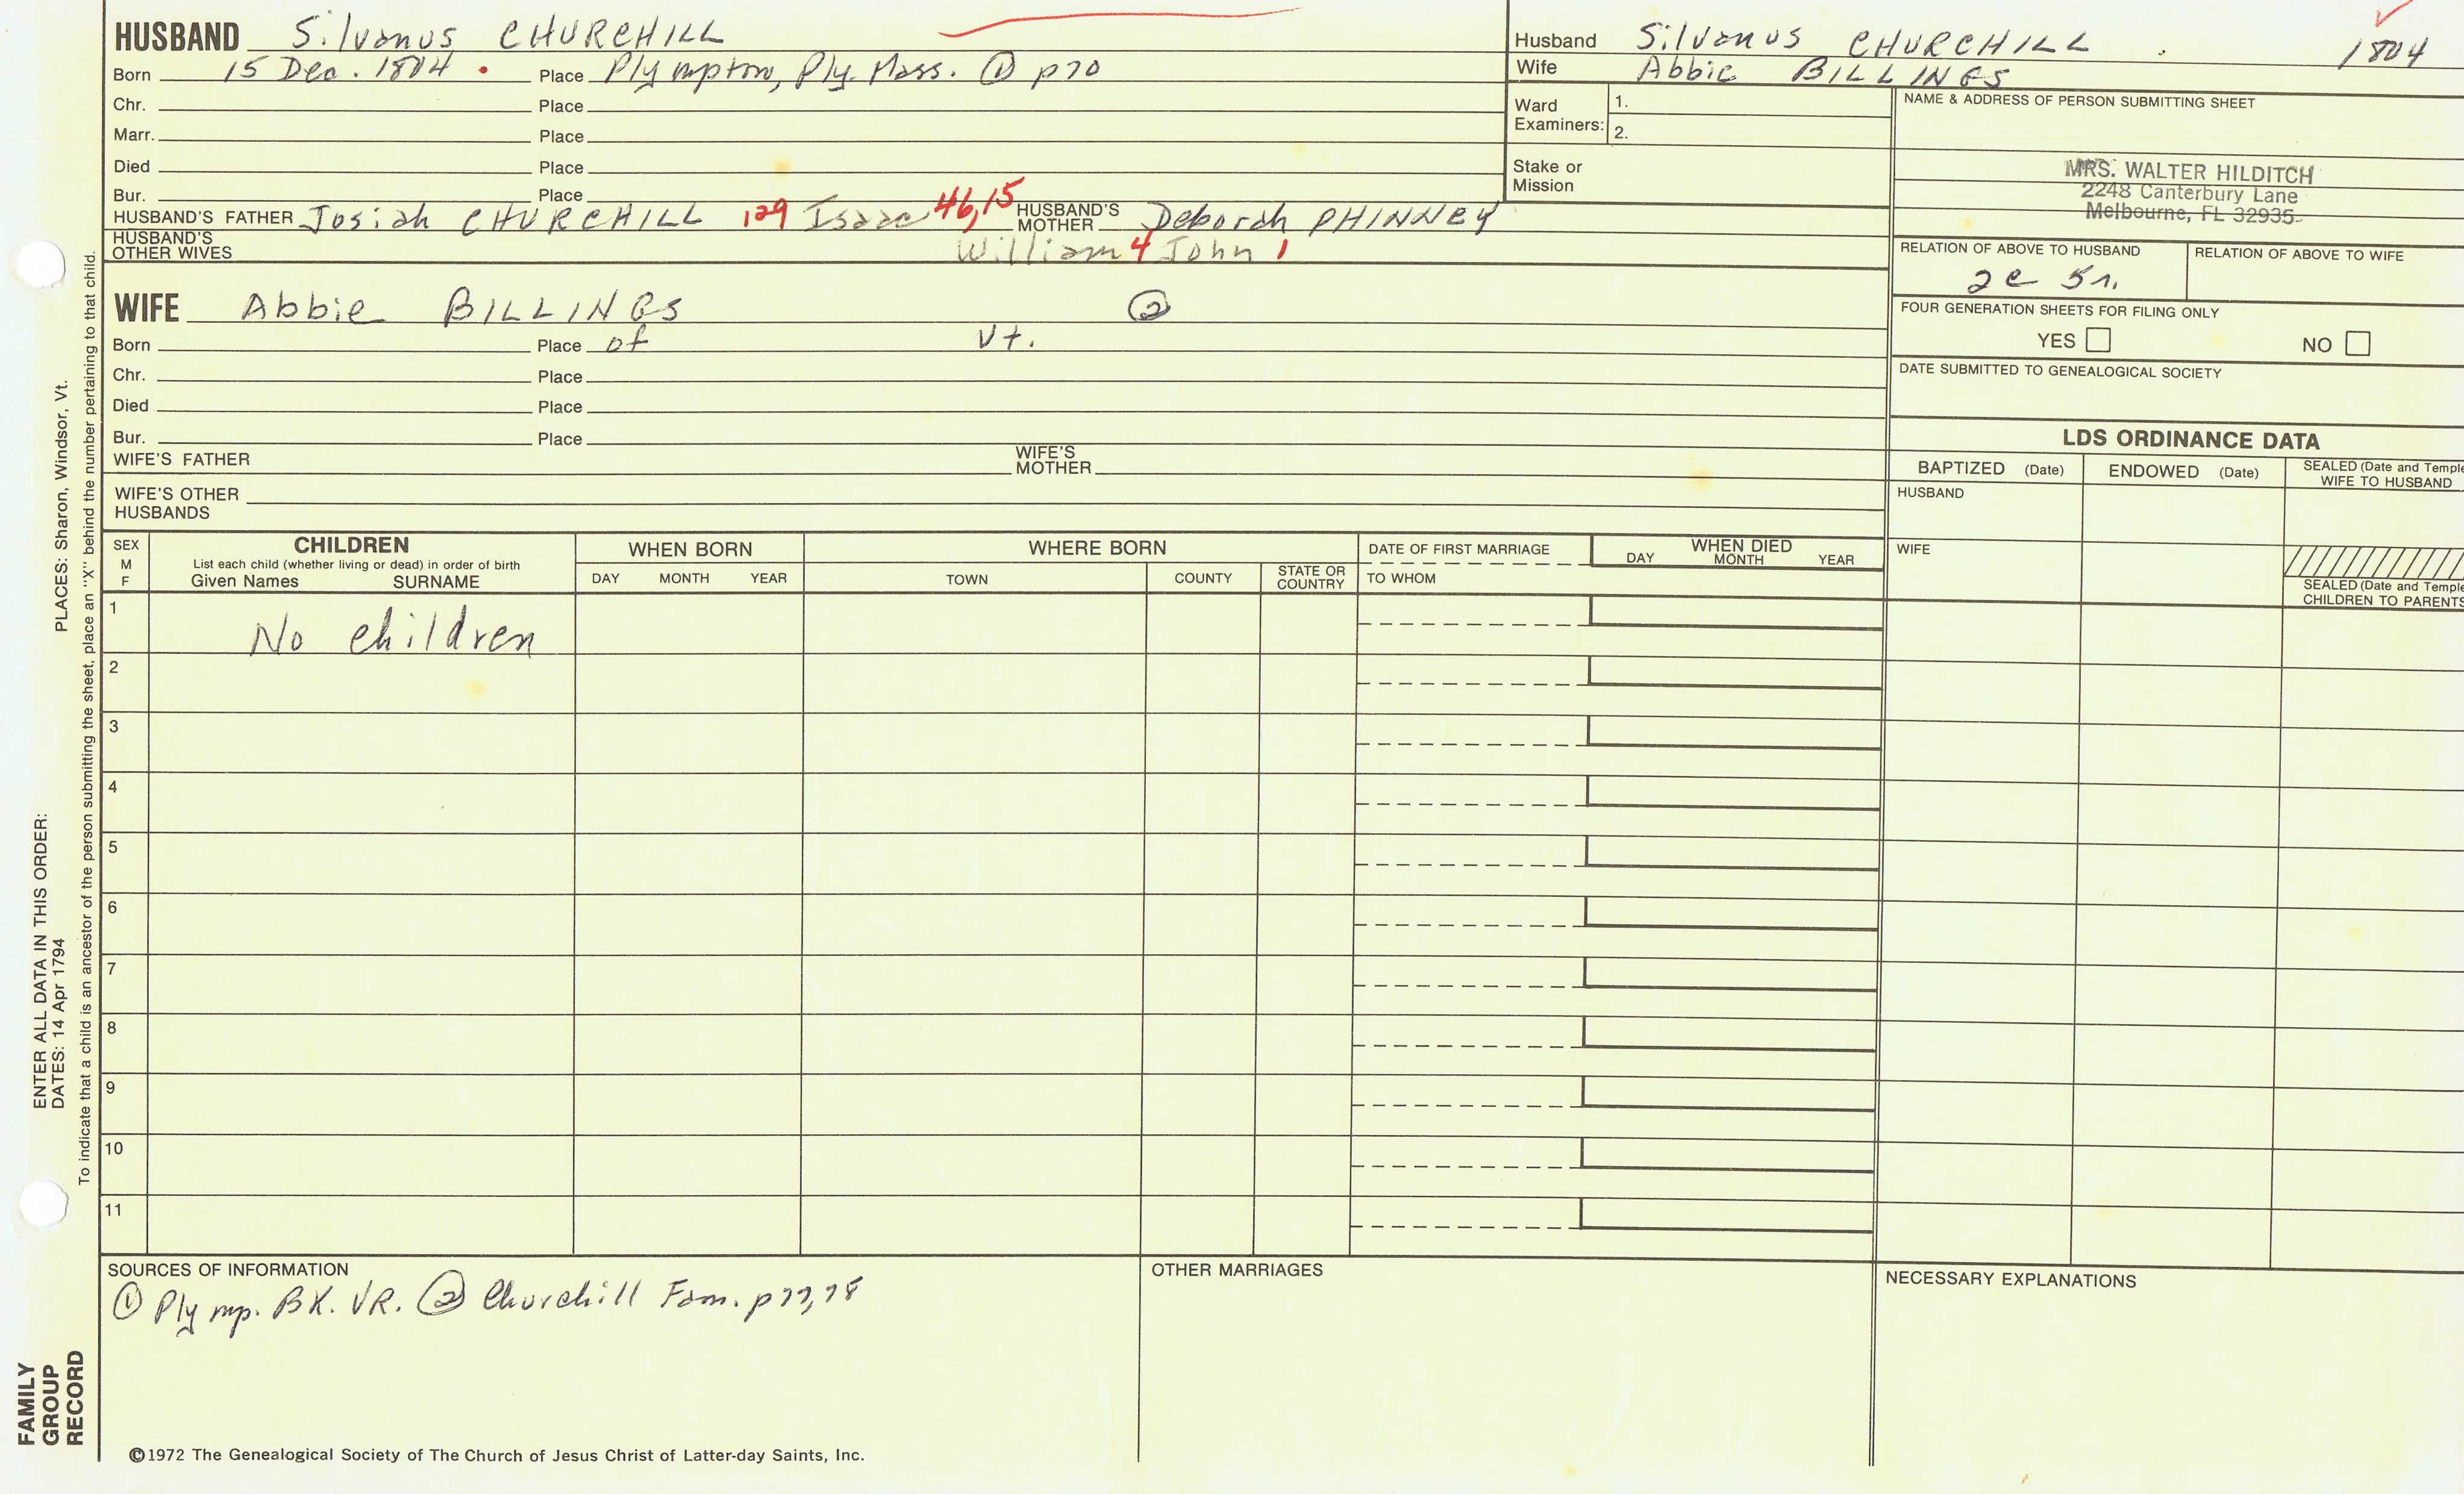 HUSBAND Silvanus CHURCHILL
Born 15 Dec. 1804 Place Plympton, Ply. Mass. ① p70
Chr. Place
Marr. Place
Died Place
Bur. Place
HUSBAND'S FATHER Josiah CHURCHILL 129 Isaac 46,15 HUSBAND'S MOTHER Deborah PHINNEY
HUSBAND'S OTHER WIVES William 4 John 1
WIFE Abbie BILLINGS ②
Born Place of Vt.
Chr. Place
Died Place
Bur. Place
WIFE'S FATHER WIFE'S MOTHER
WIFE'S OTHER HUSBANDS
Husband Silvanus CHURCHILL 1804
Wife Abbie BILLINGS
Ward Examiners: 1.
2.
Stake or Mission
NAME & ADDRESS OF PERSON SUBMITTING SHEET
MRS. WALTER HILDITCH
2248 Canterbury Lane
Melbourne, FL 32935
RELATION OF ABOVE TO HUSBAND RELATION OF ABOVE TO WIFE
2c 5r.
FOUR GENERATION SHEETS FOR FILING ONLY
YES NO
DATE SUBMITTED TO GENEALOGICAL SOCIETY
LDS ORDINANCE DATA
BAPTIZED (Date) ENDOWED (Date) SEALED (Date and Temple
WIFE TO HUSBAND
HUSBAND
WIFE
SEALED (Date and Temple
CHILDREN TO PARENTS
SEX M F
CHILDREN
List each child (whether living or dead) in order of birth
Given Names SURNAME
WHEN BORN
DAY MONTH YEAR
WHERE BORN
TOWN COUNTY STATE OR COUNTRY
DATE OF FIRST MARRIAGE
TO WHOM
WHEN DIED
DAY MONTH YEAR
1 No children
2
3
4
5
6
7
8
9
10
11
SOURCES OF INFORMATION
① Plymp. BK. VR. ② Churchill Fam. p77,78
OTHER MARRIAGES
NECESSARY EXPLANATIONS
©1972 The Genealogical Society of The Church of Jesus Christ of Latter-day Saints, Inc.
FAMILY
GROUP
RECORD
ENTER ALL DATA IN THIS ORDER:
DATES: 14 Apr 1794 PLACES: Sharon, Windsor, Vt.
To indicate that a child is an ancestor of the person submitting the sheet, place an "X" behind the number pertaining to that child.